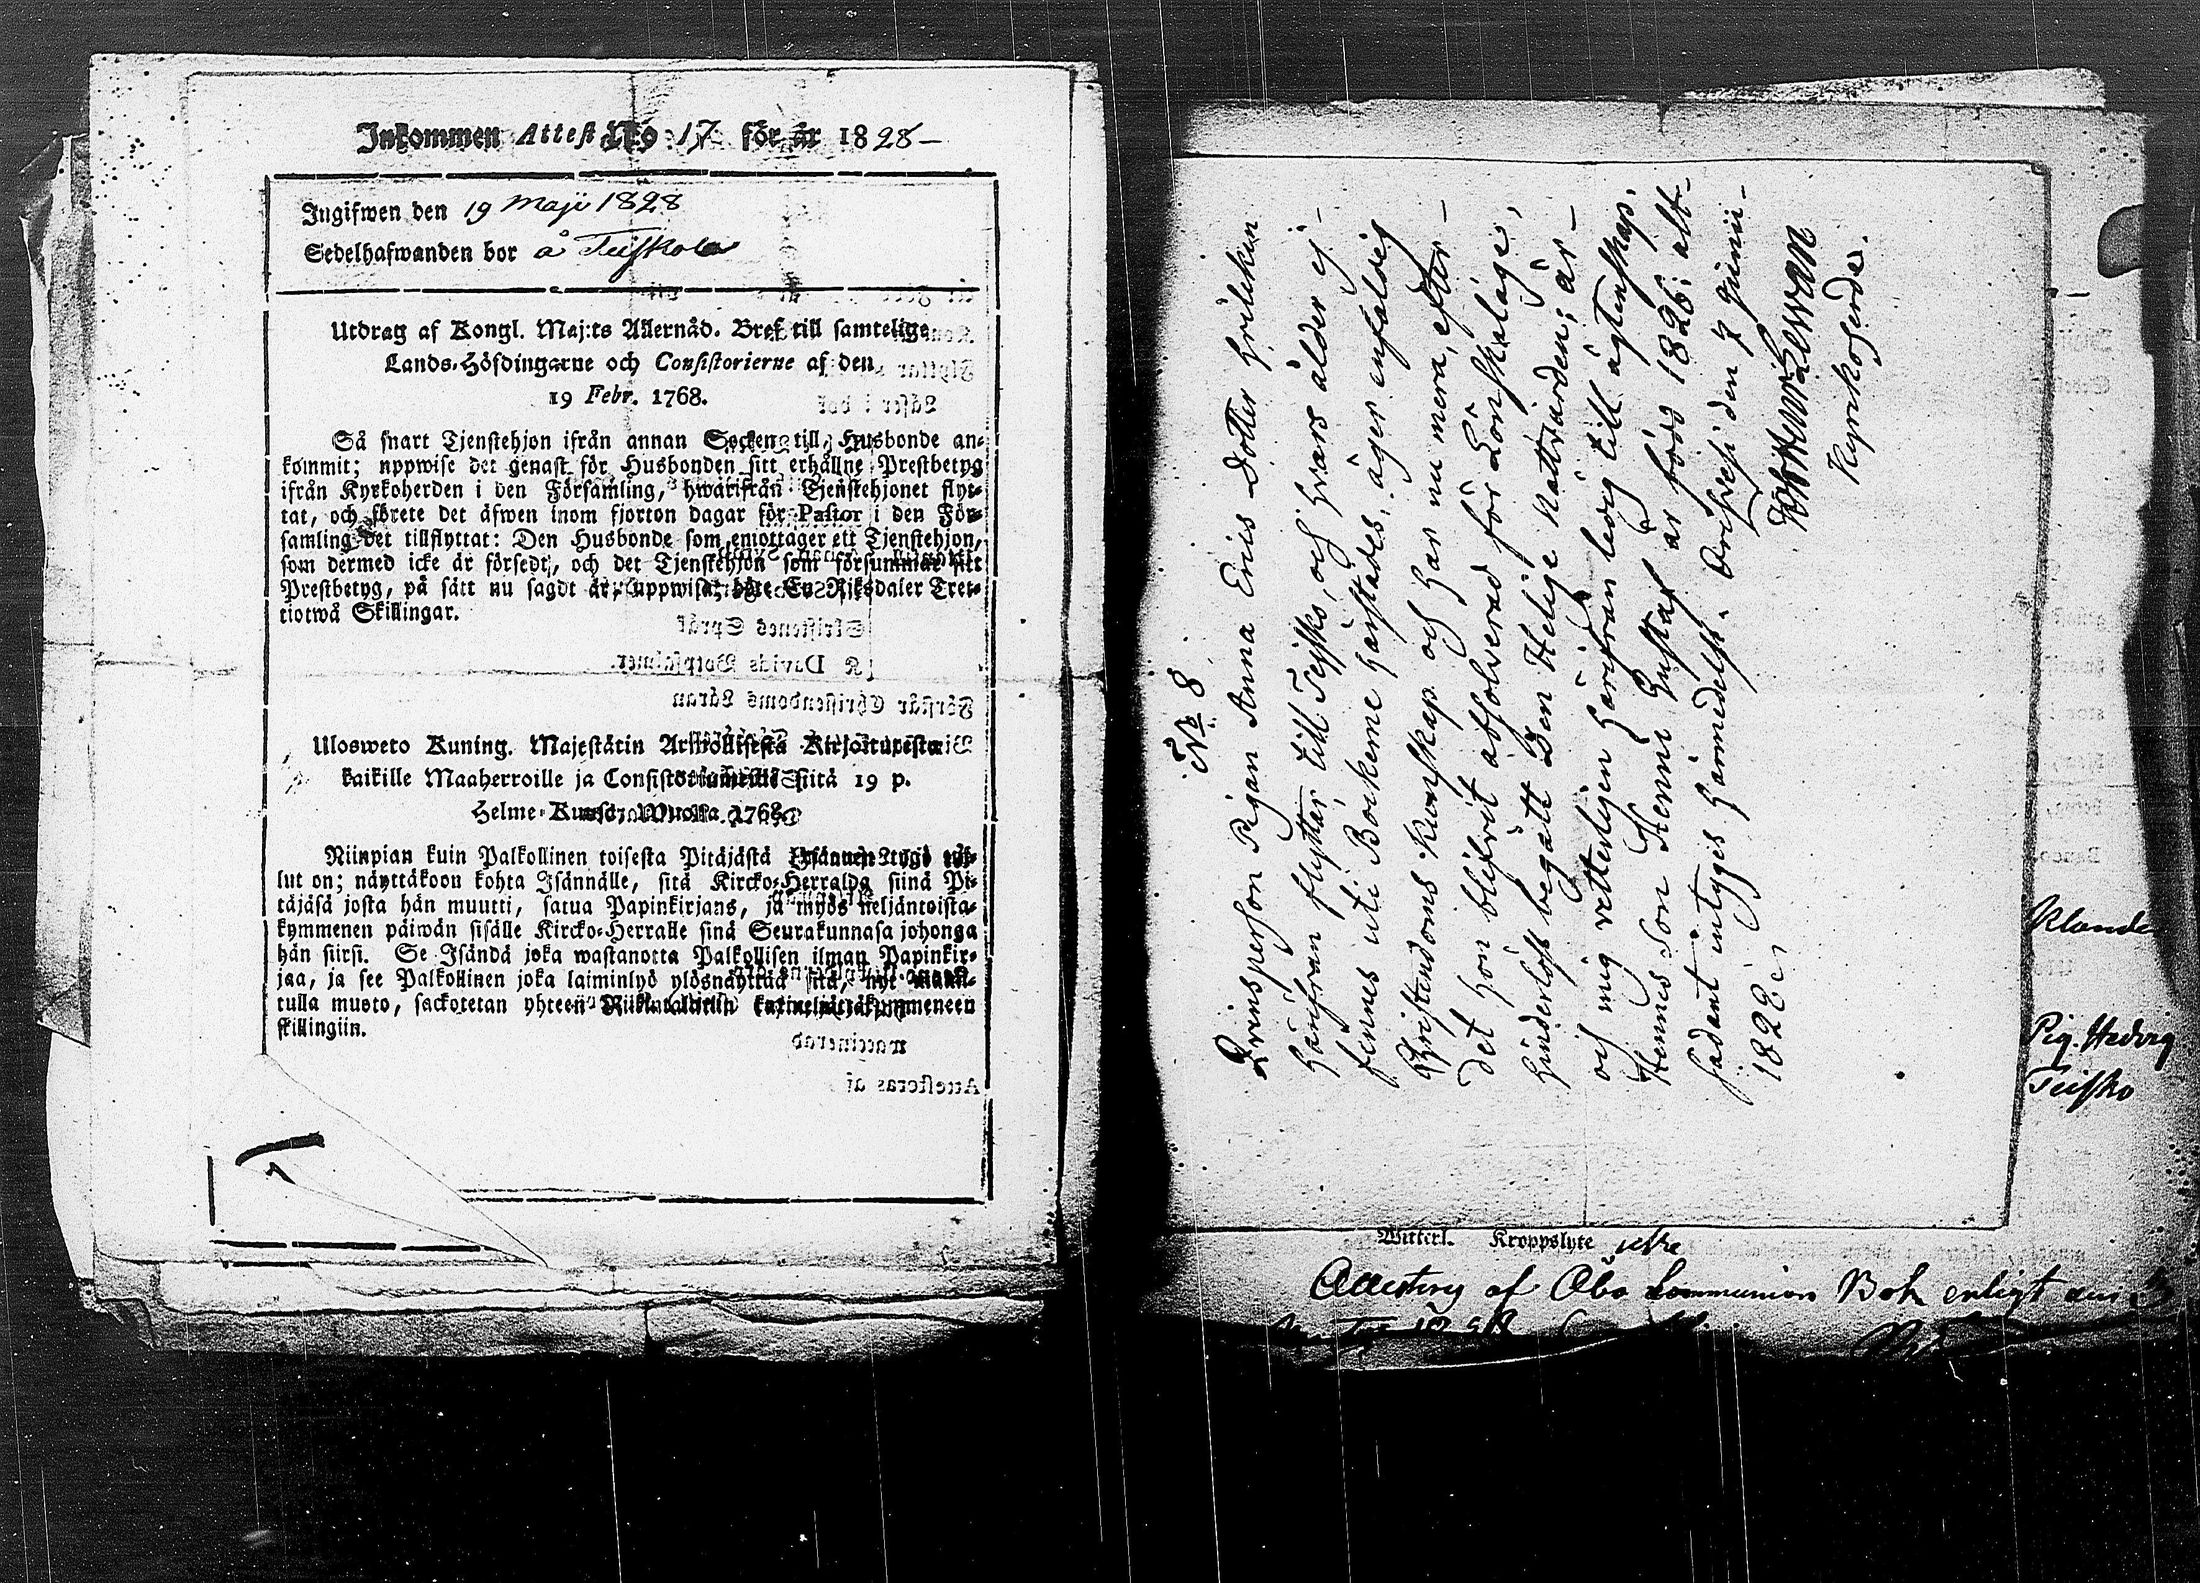 Inkommen Attest No 17 för år 1828
Ingifwen den 19 Maji 1828
Sedelhafwanden bor å Teiskola
Utdrag af Kongl. Maj:ts Allernåd. Bref till samtelige
Lands-Höfdingarne och Consistorierne af den
19 Febr. 1768.
Så snart Tjenstehjon ifrån annan Socken till Husbonde an-
kommit; uppwise det genast för Husbonden sitt erhållne Prestbetyg
ifrån Kyrkoherden i den Församling, hwarifrån Tjenstehjonet flyt-
tat, och förete det äfwen inom fjorton dagar för Pastor i den För-
samling det tillflyttat: Den Husbonde som emottager ett Tjenstehjon,
som dermed icke är försedt, och det Tjenstehjon som försummar sitt
Prestbetyg, på sätt nu sagdt är, uppwisa, böte En Riksdaler Tret-
tiotwå Skillingar.
Ulosweto Kuning. Majestätin Armollisesta Kirjoituxesta
kaikille Maaherroille ja Consistoriumeille siitä 19 p.
Helme-Kuusa, Wuonna 1768.
Niinpian kuin Palkollinen toisesta Pitäjästä Isännen tygö tul-
lut on; näyttäkoon kohta Isännälle, sitä Kircko-Herralda siinä Pi-
täjäsä josta hän muutti, satua Papinkirjans, ja myös neljäntoista-
kymmenen päiwän sisälle Kircko-Herralle sinä Seurakunnasa johonga
hän siirsi. Se Isändä joka wastanotta Palkollisen ilman Papinkir-
jaa, ja see Palkollinen joka laiminlyö ylösnäyttää sitä, nyt mainit-
tulla muoto, sackotetan yhteen Riikintalariin kaxineljättäkymmeneen
skillingiin.
No 8
Qvinsperson Pigan Anna Erics dotter hvilcken
härifran flyttar till Teisko, och hvars ålder ej
finnes uti Böckerne härstädes, äger enfaldig
Christendoms kunskap och har nu mera, efter
det hon blifvit absolverad för Lönskaläge,
hinderlöst begått Den Helige Nattvarden; är
och mig vetterligen härifrån ledig till ägtenskap.
Hennes Son Henric Gustaf är född 1826: alt
sådant intyges härmedelst. Orihvesi den 7 Junii
1828.
Kyrkoherde.
Klande
Pig. Hedvig
Teisko
Witterl. Kroppslyte icke
Attesteras af Åbo Communion Bok enligt